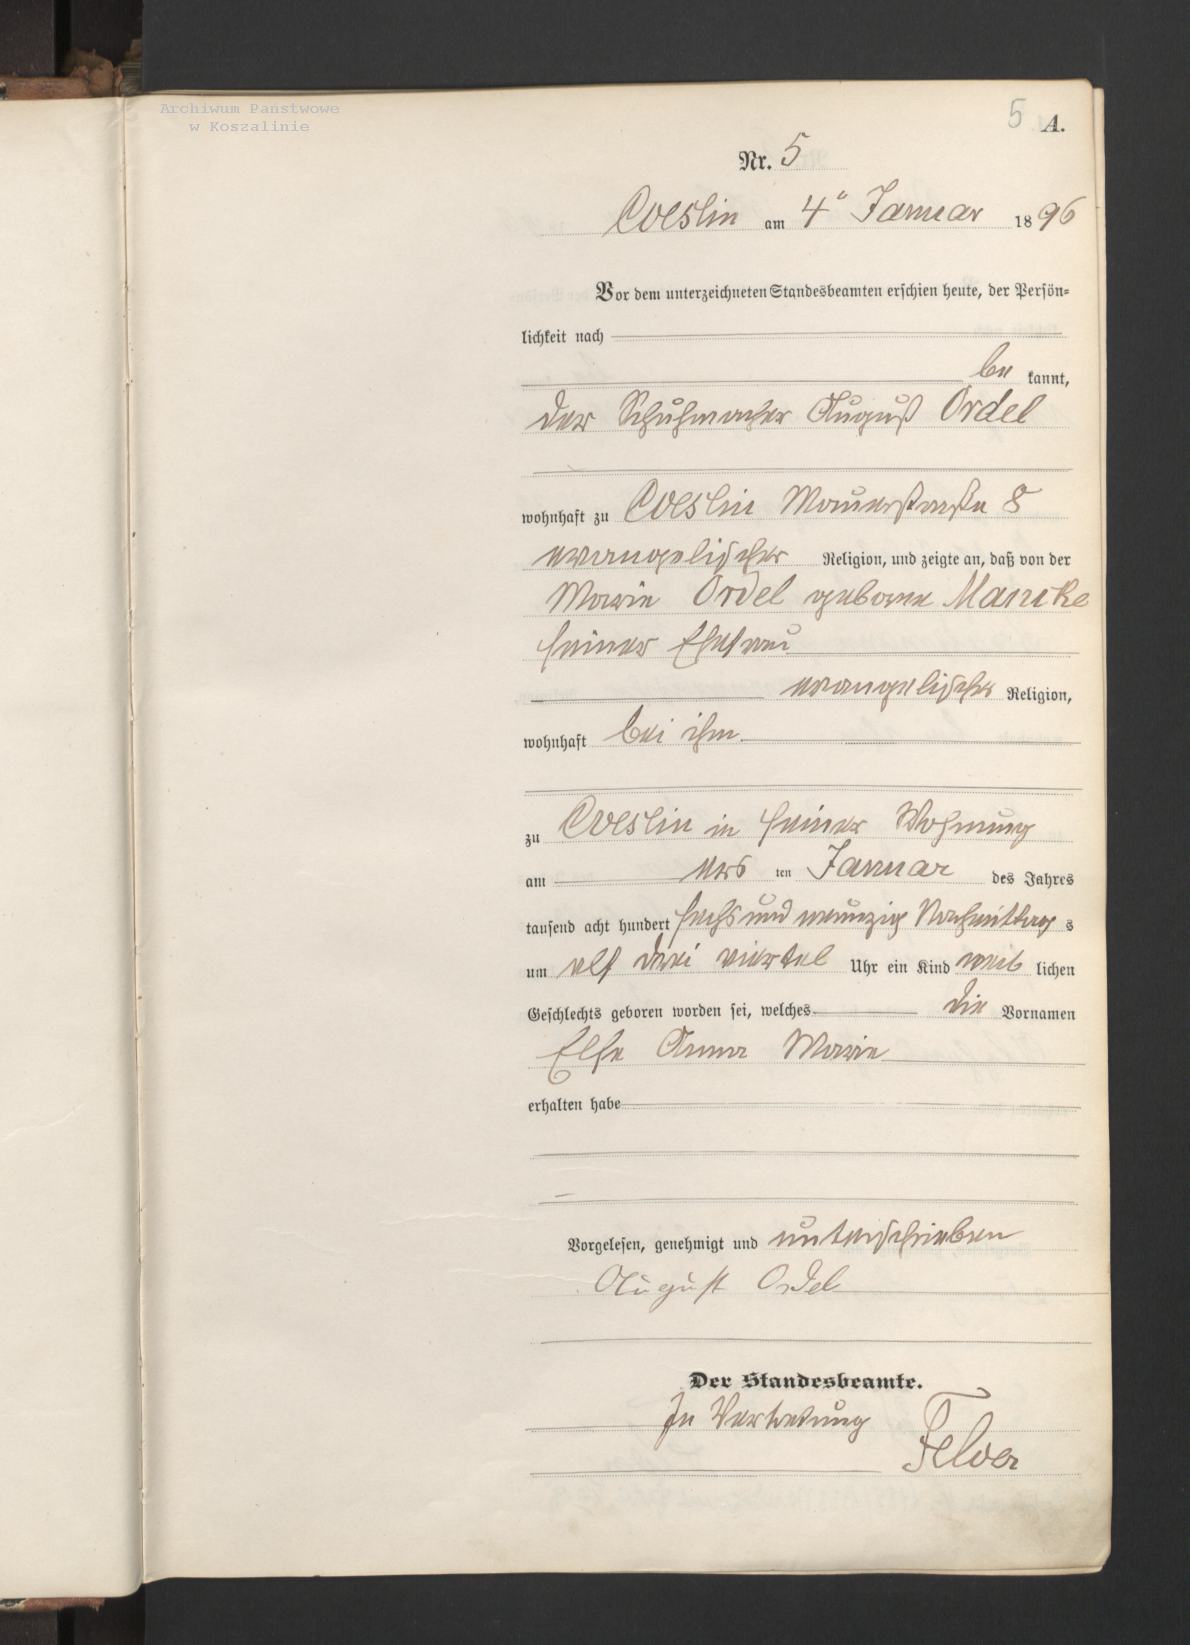 Archiwum Państwowe
w Koszalinie
5 A.
Nr. 5
Coeslin am 4ᵗ Januar 1896
Vor dem unterzeichneten Standesbeamten erschien heute, der Persön-
lichkeit nach
be kannt,
der Schuhmacher August Ordel
wohnhaft zu Coeslin Mauerstraße 8
evangelischer Religion, und zeigte an, daß von der
Marie Ordel geborne Mancke
seiner Ehefrau
evangelischer Religion,
wohnhaft bei ihm
zu Coeslin in seiner Wohnung
am ers ten Januar des Jahres
tausend acht hundert sechs und neunzig Nachmittag s
um elf drei viertel Uhr ein Kind weib lichen
Geschlechts geboren worden sei, welches die Vornamen
Else Anna Marie
erhalten habe
Vorgelesen, genehmigt und unterschrieben
August Ordel
Der Standesbeamte.
In Vertretung